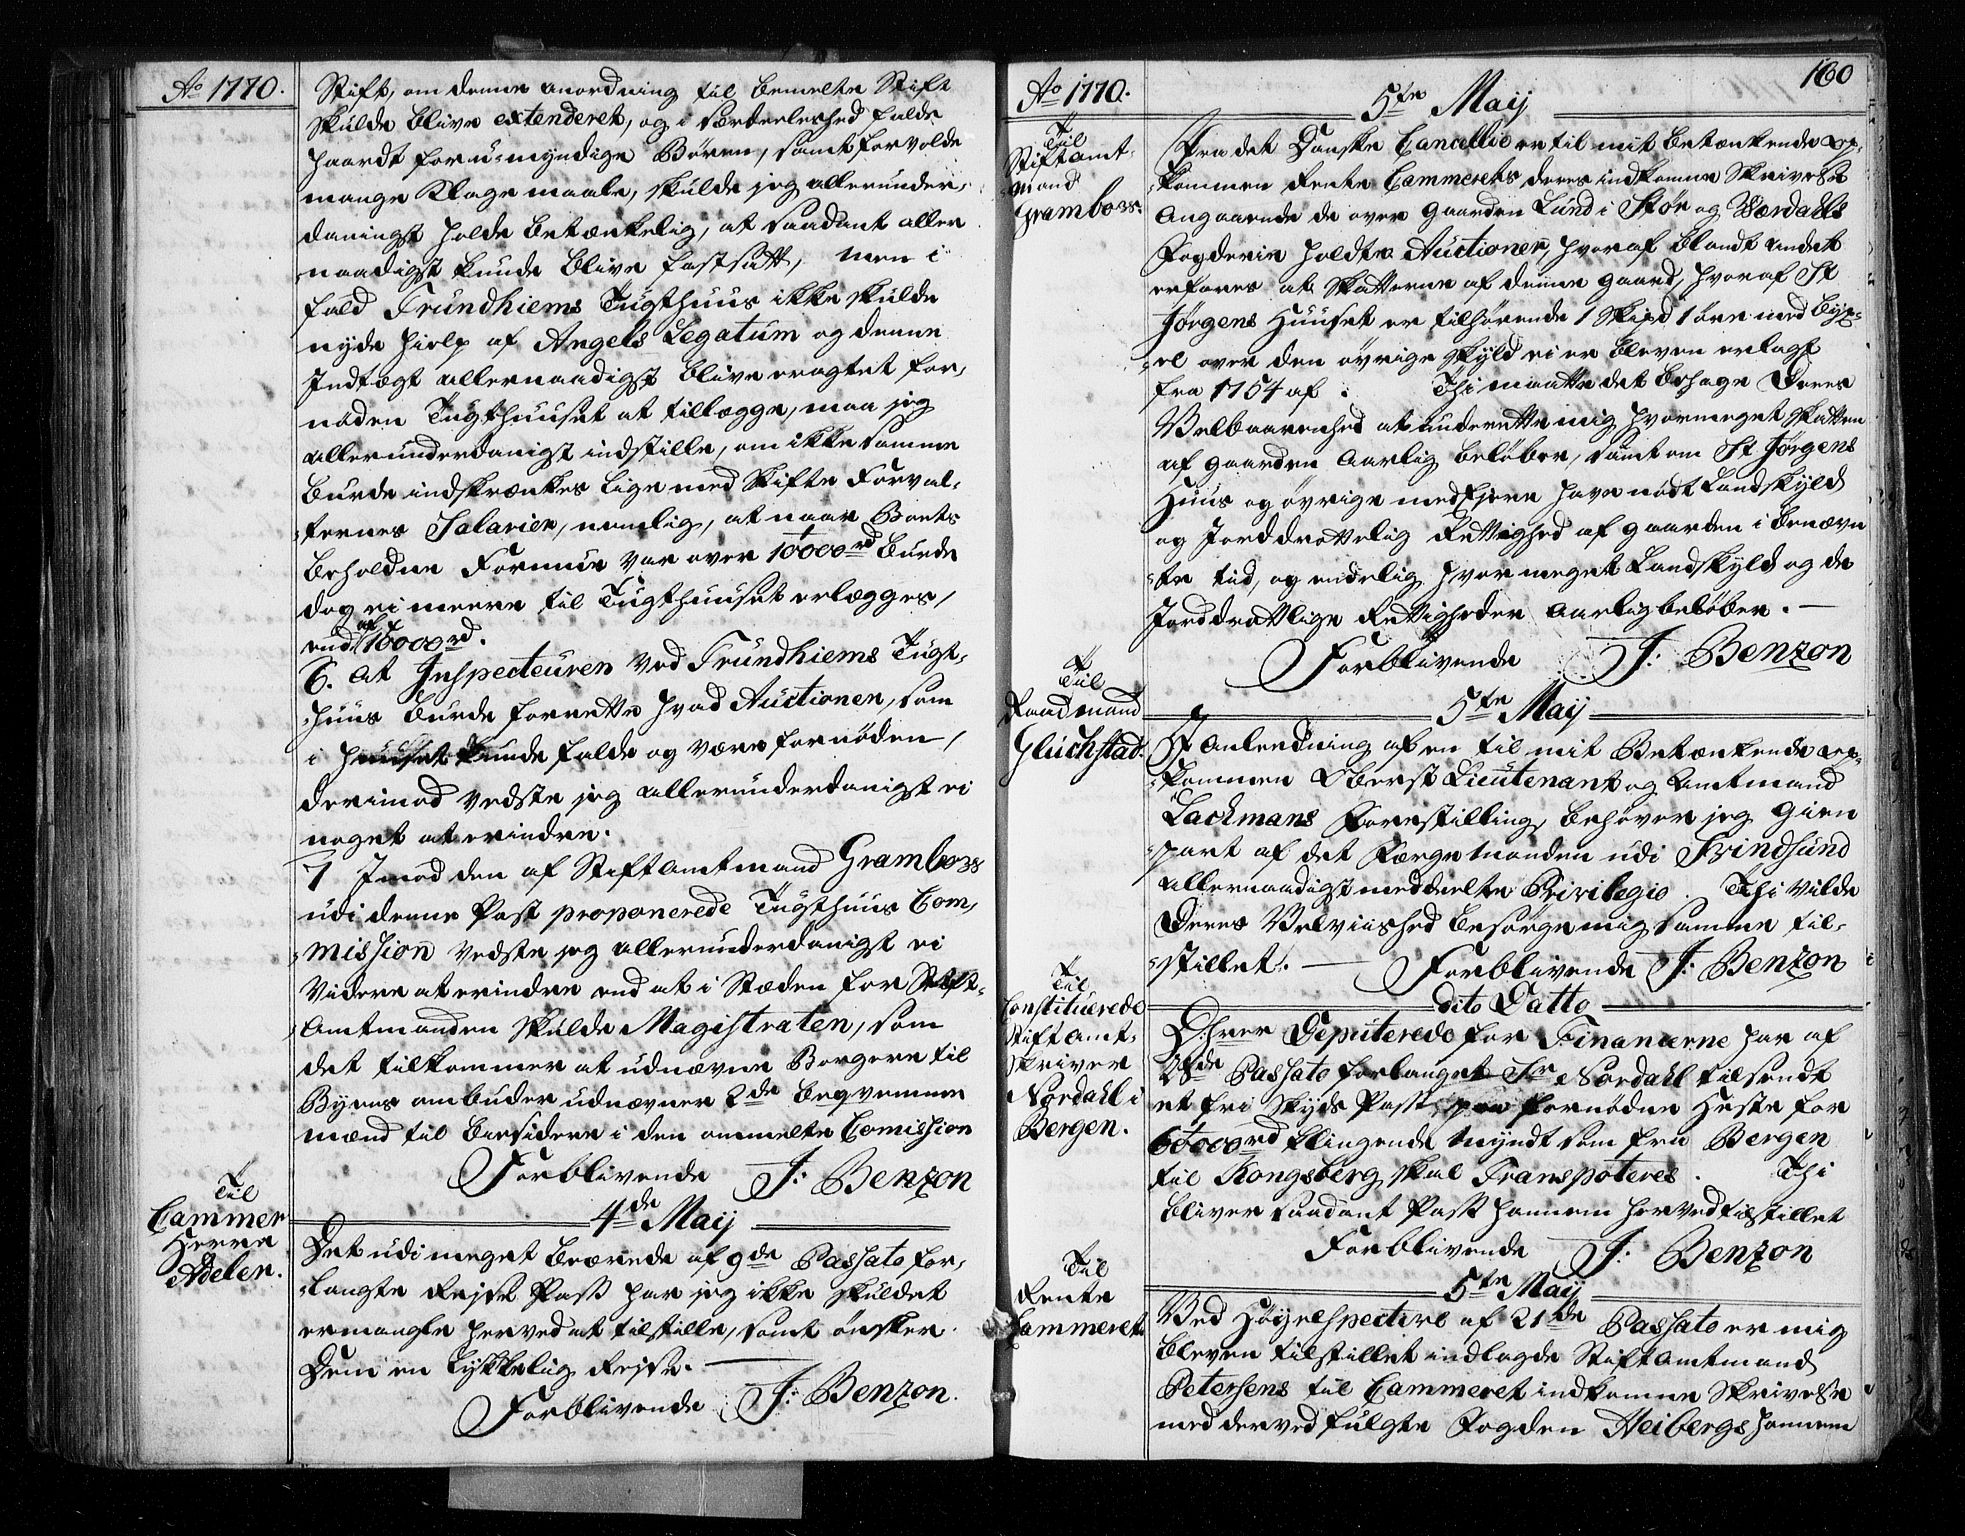 Ao 1770.
Stift, om denne anordning til bemelte Stift
skulde blive extenderet, og i særdeleshed falde
haardt for u-myndige Børn, samt forvolde
mange Klagemaale, skulde jeg allerunder-
danigst holde betænkelig, at saadant aller
naadigst kunde blive fastsatt, men i
fald Trundhiems Tugthuus ikke skulde
nyde hielp af Angels Legatum og denne
Indtægt allernaadigst blive eragtet for-
nøden Tugthuuset at tillægge, maa jeg
allerunderdanigst indstille, om ikke samme
burde indskrænkes lige med Skifte Forval-
ternes Salarier, nemlig, at naar Boets
beholdne Formue var over 10000 rd burde
dog ei meere til Tugthuuset erlægges,
end af 10000 rd.
6. At Inspecteuren ved Trundhiems Tugt-
huus burde forrette hvad Auctioner, som
i huuset kunde falde og være fornøden,
derimod vedste jeg allerunderdanigst ei
noget at erindre.
7 Imod den af Stiftamtmand Grambow
udi denne Post proponerede Tugthuus Com-
mission vedste jeg allerunderdanigst ei
videre at erindre end at i Stæden for Stift-
Amtmanden skulde Magistraten, som
det tilkommer at udnævne Borgere til
Byens ombuder udnævner 2de beqvemme
mænd til Beisidere i den ommelte Comission
Forblivende J: Benzon
Til
Cammer
Herre
Adeler.
4de Maij
Det udi meget beærede af 9de Passato for-
langte Rejse Pass har jeg ikke skuldet
ermangle herved at tilstille, samt ønsker
Dem en lykkelig Rejse.
Forblivende J: Benzon.
Ao 1770.
160
5te Maij
Til
Stiftamt-
mand
Grambow.
Fra det Danske Cancellie er til mit betænkende op-
kommen Rente Cammerets deres indkomne Skrivelse
Angaaende de over Gaarden Lund i Stør og Værdahls
Fogderie holdte Auctioner, hvoraf blandt andet
erfares at Skatterne af denne gaard, hvoraf St
Jørgens Huuset er tilhørende 1 Skind 1 øre med byx-
el over den øvrige skyld ei er bleven erlagt
fra 1754 af. Thi maatte det behage Deres
Velbaarenhed at underrette mig hvormeget skatten
af gaarden Aarlig beløber, samt om St Jørgens
Huus og øvrige medEjere have nødt Landskyld
og Jorddrottelig Rettighed af gaarden i benævn
te tid, og endelig hvor meget Landskyld og de
Jorddrottlige Rettigheder Aarlig beløber.
Forblivende J: Benzon
Til
Raadmand
Gluchstad.
5te Maij
I Anledning af en til mit Betænkende op-
kommen Oberst Lieutenant og Amtmand
Lackmans Forestilling, behøver jeg Gien
part af det Færgemanden udi Svindsund
allernaadigst meddeelte Privilegio. Thi vilde
Deres Velviished besørge mig samme til-
stillet. Forblivende J: Benzon
Til
Constituerede
Stift Amt-
skriver
Nordahl i
Bergen.
dito Datto
D:hrer Deputerede for Financerne har af
28de Passato forlanget Sr Nordahl tilsendt
et fri Skyds Pass paa fornødne Heste for
60000 rd klingende Myndt som fra Bergen
til Kongsberg skal Transpoteres. Thi
bliver saadant Pass hannem herved tilstillet
Forblivende J: Benzon
Til
Rente
Cammeret.
5te Maij
Ved Højrespective af 21de Passato er mig
bleven tilstillet indlagde Stiftamtmand
Petersens til Cammeret indkomne Skrivelse
med derved fulgte Fogden Heibergs hannem